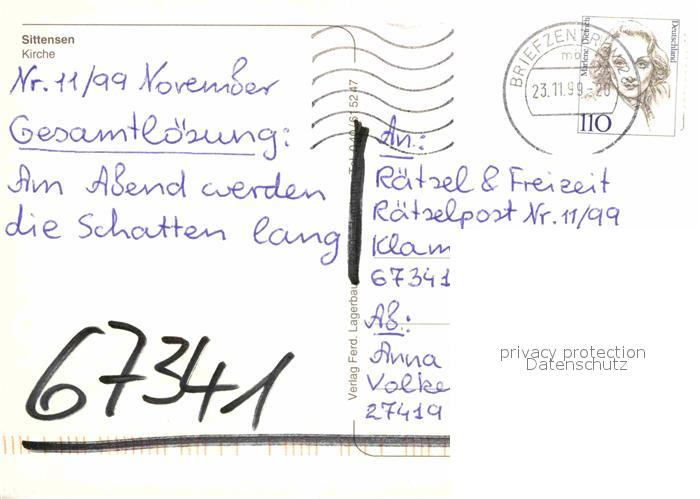 Sittensen
Kirche
Nr. 11/99 November
Gesamtlösung:
Am Abend werden
die Schatten lang
67341
Verlag Ferd. Lagerbau
5247
An:
Rätsel & Freizeit
Rätselpost Nr. 11/99
Klam
67341
Ab:
Anna
Volke
27419
BRIEFZENTR
23.11.99-20
Marlene Dietrich
Deutschland
110
privacy protection
Datenschutz